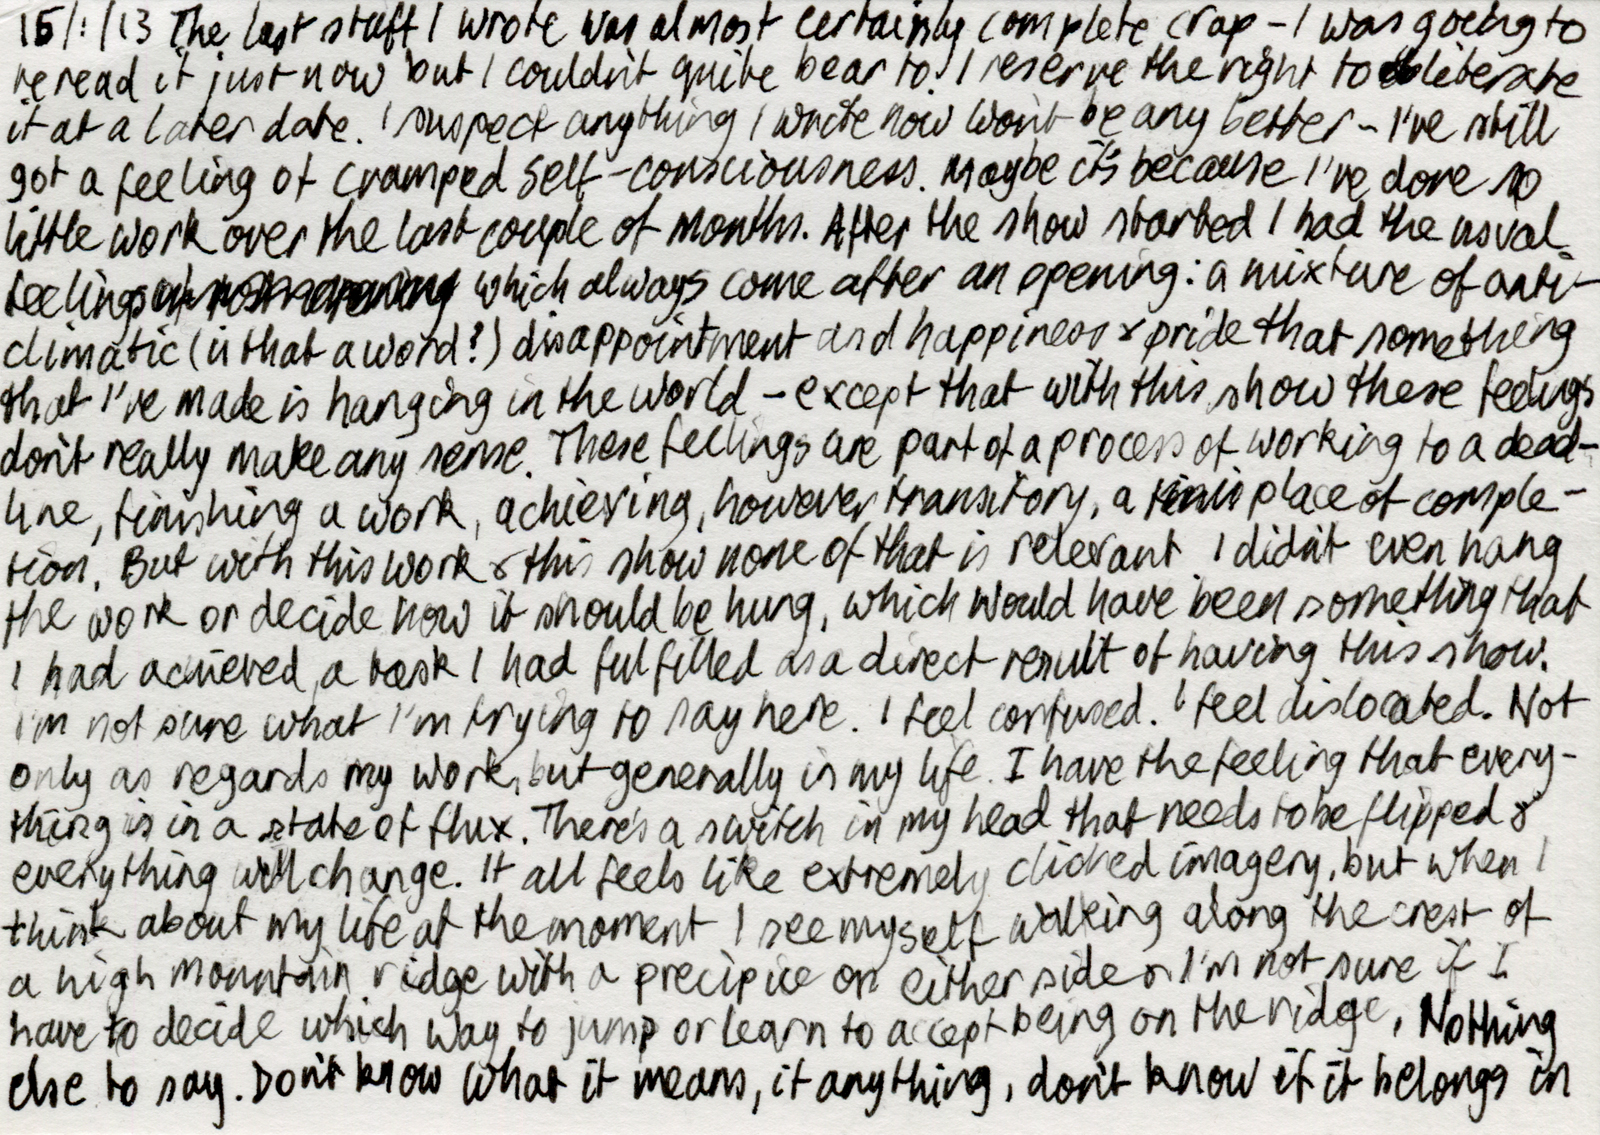 15/1/13 The last stuff I wrote was almost certainly complete crap – I was going to
reread it just now but I couldn't quite bear to. I reserve the right to obliterate
it at a later date. I suspect anything I write now won't be any better – I've still
got a feeling of cramped self-consciousness. Maybe it's because I've done so
little work over the last couple of months. After the show started I had the usual
feelings which always come after an opening: a mixture of anti-
climatic (is that a word?) disappointment and happiness & pride that something
that I've made is hanging in the world – except that with this show these feelings
don't really make any sense. These feelings are part of a process of working to a dead-
line, finishing a work, achieving, however transitory, a place of comple-
tion. But with this work & this show none of that is relevant. I didn't even hang
the work or decide how it should be hung, which would have been something that
I had achieved, a task I had fulfilled as a direct result of having this show.
I'm not sure what I'm trying to say here. I feel confused. I feel dislocated. Not
only as regards my work, but generally in my life. I have the feeling that every-
thing is in a state of flux. There's a switch in my head that needs to be flipped &
everything will change. It all feels like extremely clichéd imagery, but when I
think about my life at the moment I see myself walking along the crest of
a high mountain ridge with a precipice on either side & I'm not sure if I
have to decide which way to jump or learn to accept being on the ridge. Nothing
else to say. Don't know what it means, if anything, don't know if it belongs in